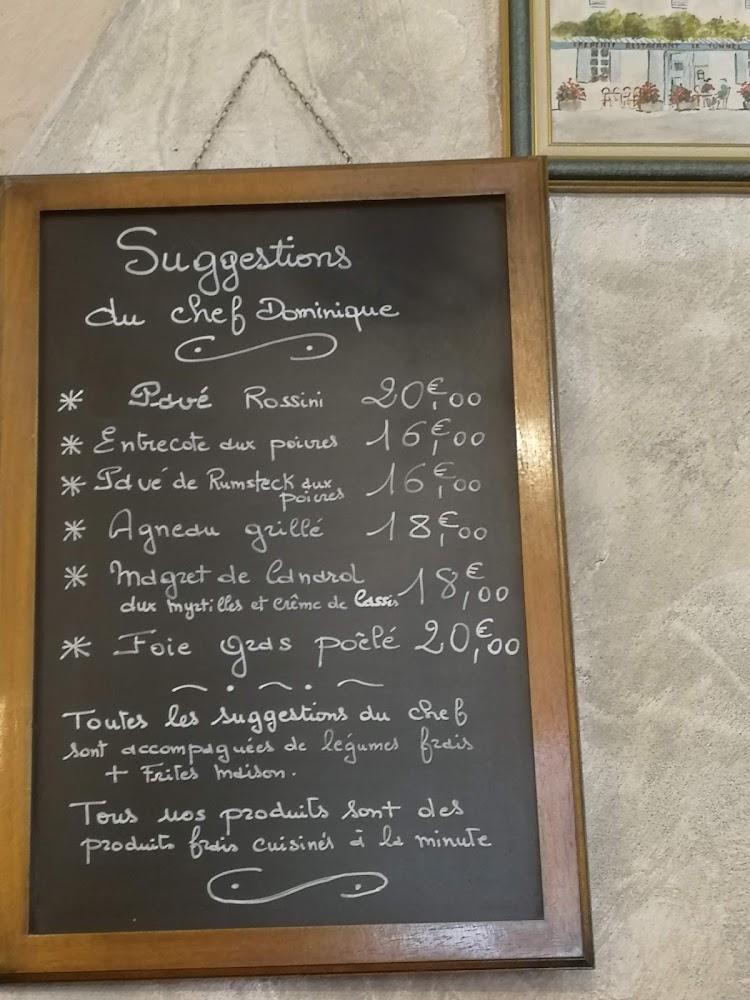 CREPERIE RESTAURANT LE TUNNEL
Suggestions
du chef Dominique
* Pavé Rossini 20€,00
* Entrecote aux poivres 16€,00
* Pavé de Rumsteck aux poivres 16€,00
* Agneau grillé 18€,00
* Magret de Canard
aux myrtilles et crême de Cassis 18€,00
* Foie gras poêlé 20€,00
Toutes les suggestions du chef
sont accompagnées de légumes frais
+ Frites maison.
Tous nos produits sont des
produits frais cuisinés à la minute